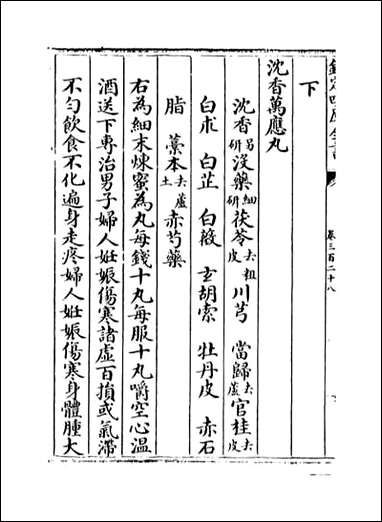 欽定四庫全書
卷三百二十八
下
沈香萬應丸
沈香另研没藥細研茯苓去粗皮川芎 當歸去蘆官桂去皮
白朮 白芷 白薇 玄胡索 牡丹皮 赤石
脂 藁本去蘆土赤芍藥
右為細末煉蜜為丸每錢十丸每服十丸嚼空心温
酒送下專治男子婦人姙娠傷寒諸虚百損或氣滯
不匀飲食不化遍身走疼婦人姙娠傷寒身體腫大